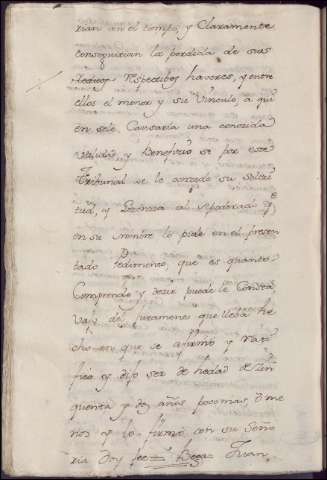 rian en el tiempo, y Claramente
conseguirian la perdida de sus
respectibos haveres, y entre
ellos el menor y su Vinculo, a qui
en se le Causaria una conocida
utilidad y Beneficio se por este
Tribunal se le accede su solici
tud, y Licencia al Apoderado qe
en su nombre lo pide en el presen
tado Pedimento, que es quanto
Comprende y decir puede le Consta
vajo del juramento que lleva he
cho en que se afirmó y Rati
ficó y dijo ser de hedad de Cin
quenta y dos años poco mas, o me
nos y lo firmó con su Seño
ria Doy fee = Vega = Juan